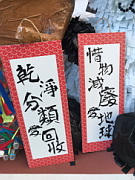 惜物減廢愛地球
乾淨分類愛回收